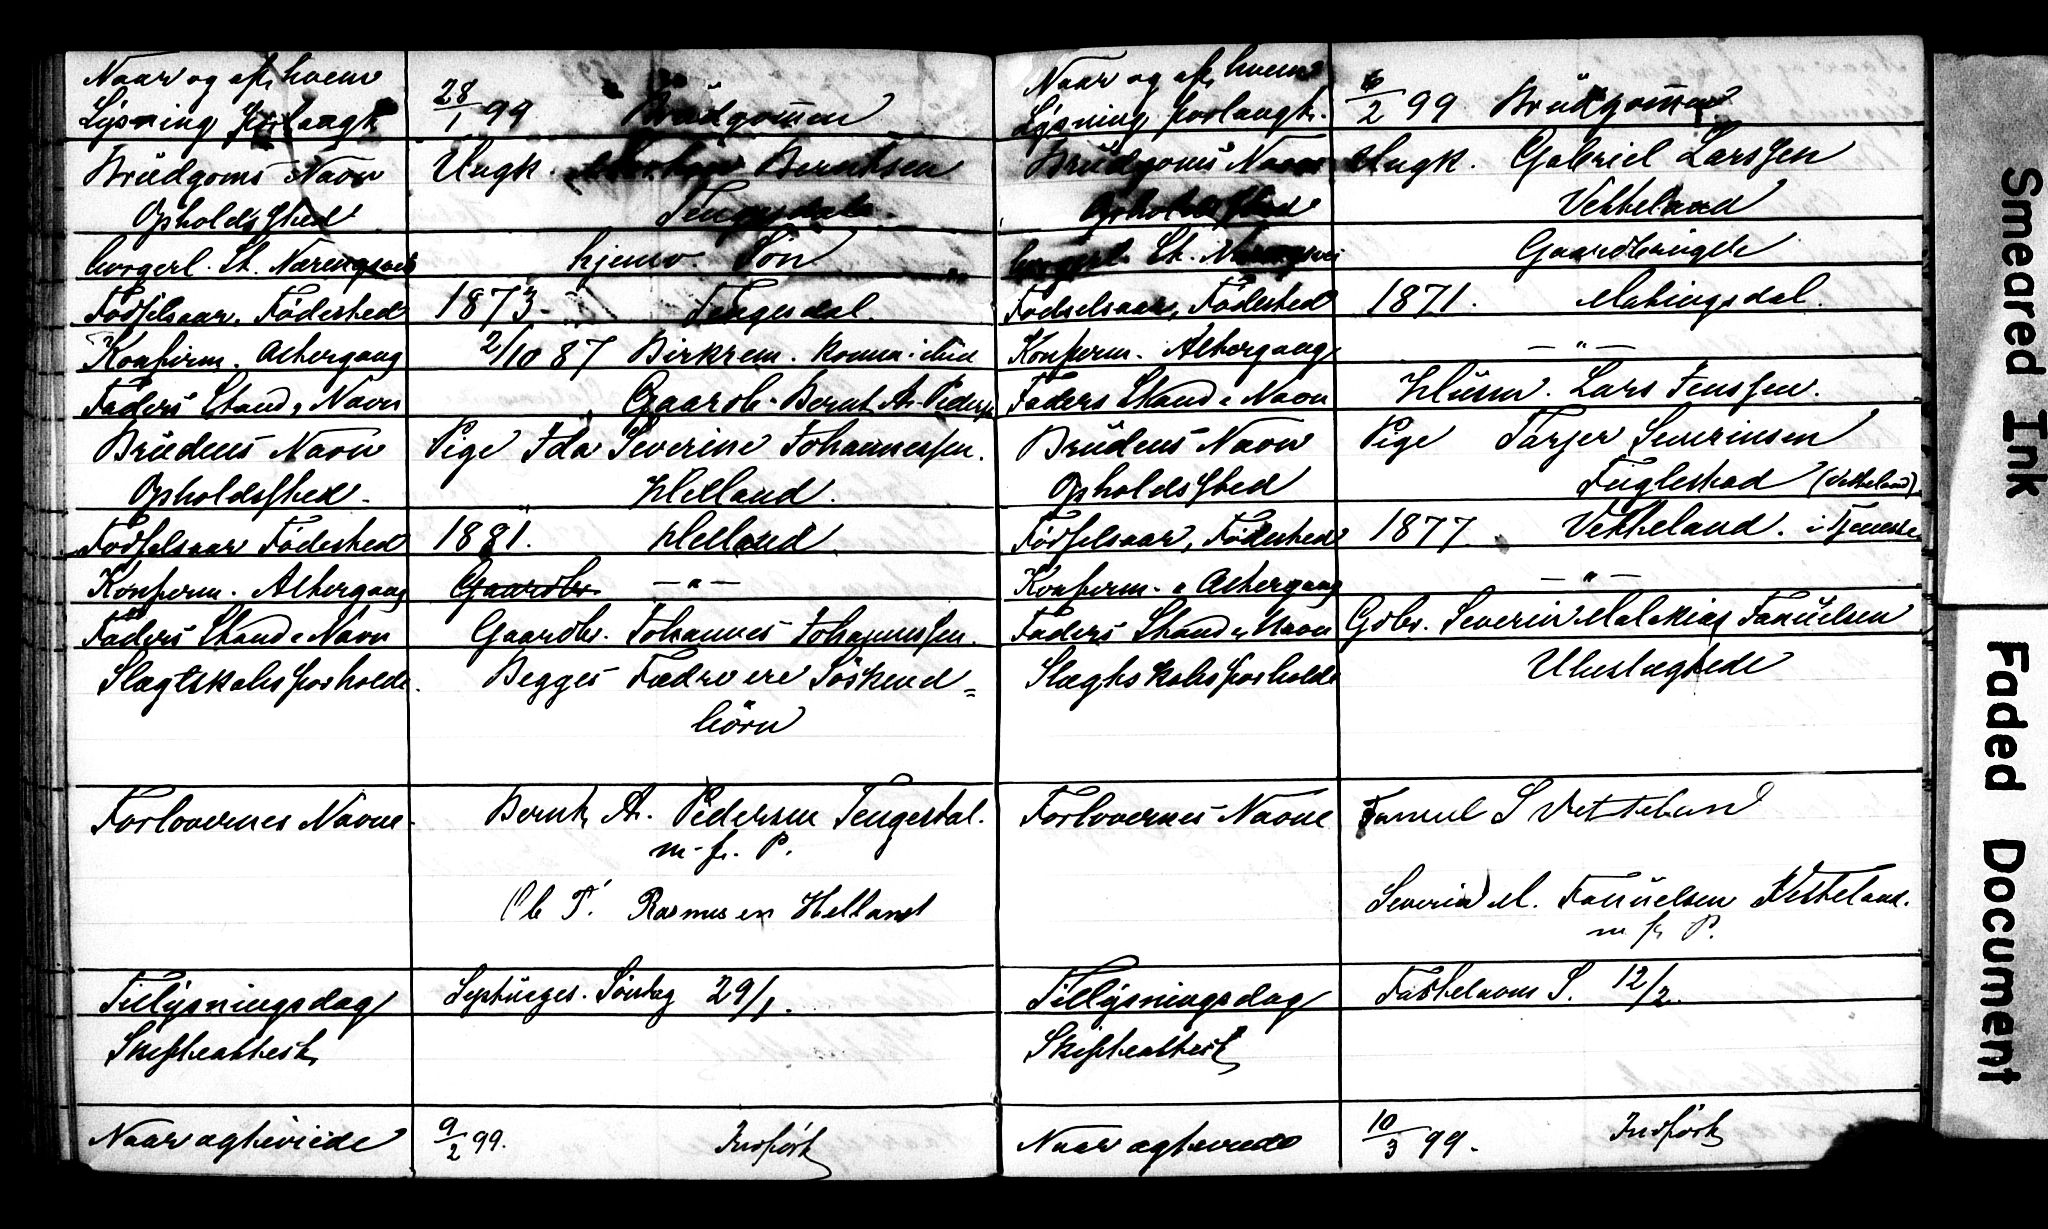 Naar og af hvem
Lysning forlangt 28/1 99 Brüdgommen
Brüdgoms Navn Ungk. Berntsen
Opholdssted Tengesdal.
borgerl. St. Næringsvei hjemv. Sön
Fødselsaar, Fødested 1873 - Tengesdal.
Konfirm. Altergang 2/10 87 Birkrem.
Faders Stand & Navn Gaardb. Bernt A. Peders
Brüdens Navn Pige Ida Severine Johannessen.
Opholdssted - " Helland.
Fødselsaar Fødested 1881. Helland
Konfirm. Altergang Gaardbr. — " —
Faders Stand & Navn Gaardbr. Johannes Johannessen.
Slægtskabsforholde. Begges Fædre ere Söskend=
börn
Forlovernes Navne. Bernt A. Pedersen Tengesdal.
m. f. P.
Ole T. Rasmusen Helland
Tillysningsdag Septuages. Söndag 29/1.
Skifteattest
Naar ægteviede 9/2 99. Indført
Naar og af hvem
Lysning forlangt. 6/2 99 Brüdgommen
Brüdgoms Navn Ungk. Gabriel Larssen
Opholdssted Vetteland
borgerl. St. Næringsvei Gaardbruger
Fødselsaar, Fødested 1871. Matingsdal.
Konfirm. Altergang — " —
Faders Stand & Navn Husm. Lars Jenssen.
Brüdens Navn Pige Tarjer Severinsen
Opholdssted Fuglestad (Vetteland)
Fødselsaar, Fødested 1877. Vetteland. i Tjeneste
Konfirm. & Altergang — " —
Faders Stand & Navn Gdbr. Severin Malakias Fanuelsen
Slægtskabsforholde Ubeslægtede
Forlovernes Navne Fanuel S Vetteland
Severin M. Fanuelsen Vetteland.
m f. P.
Tillysningsdag Fastelavns S. 12/2.
Skifteattest
Naar ægteviede 10/3 99. Indført
Smeared Ink
Faded Document